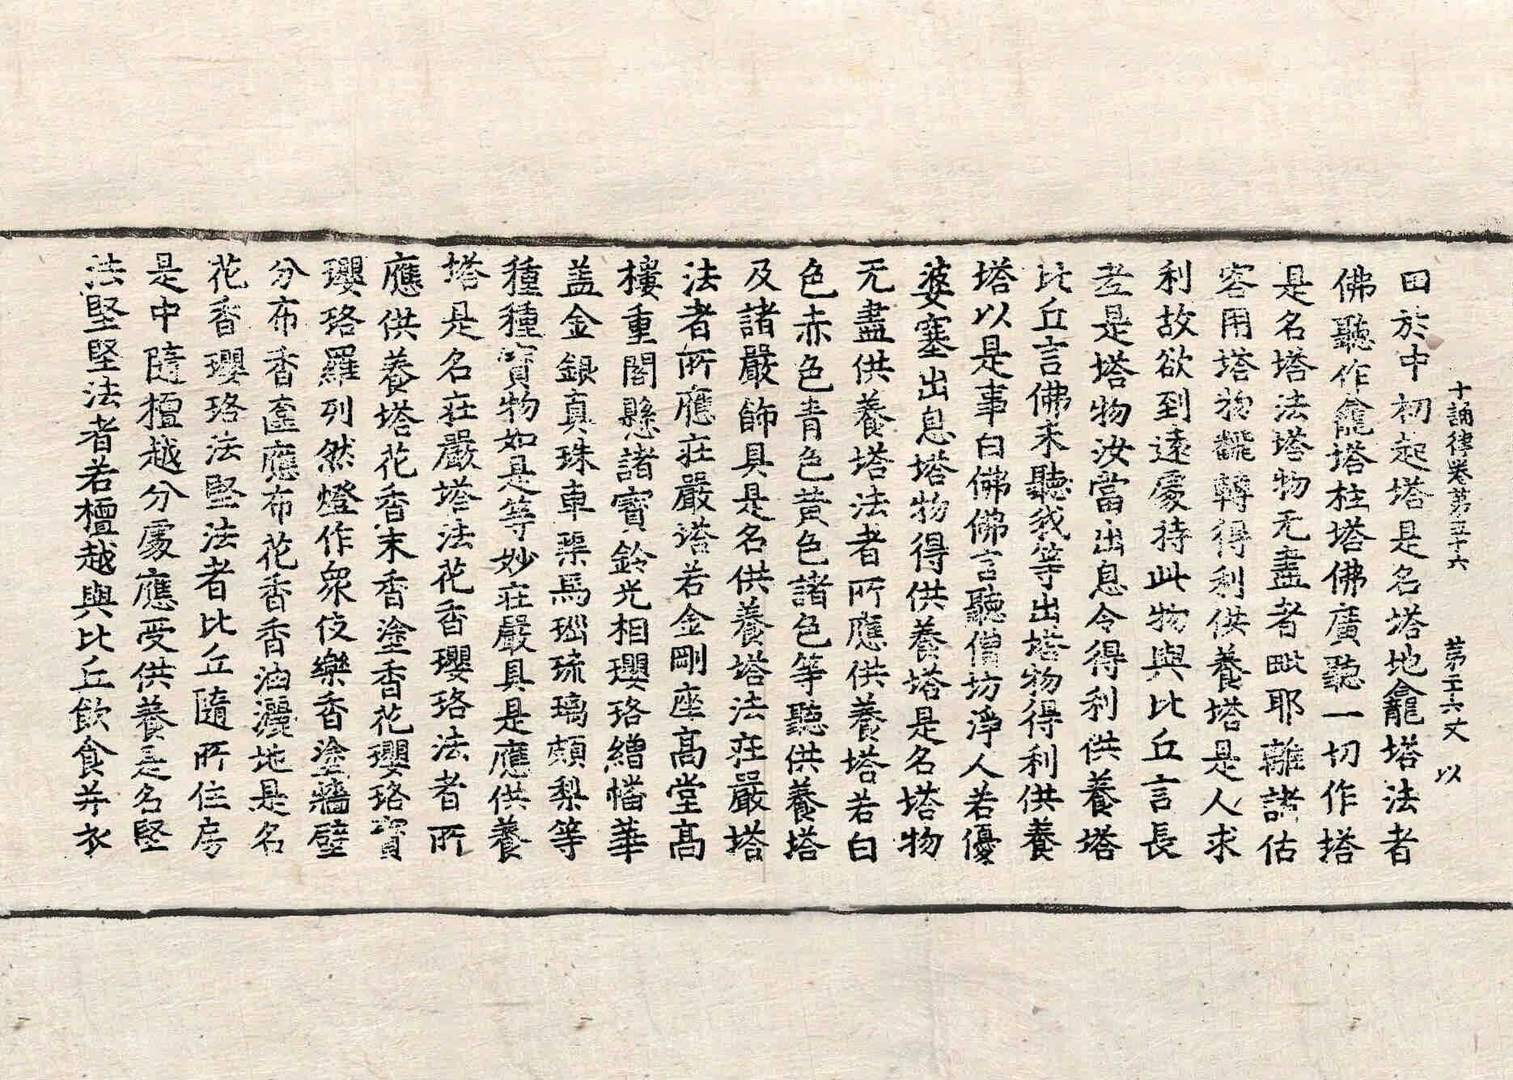 十誦律卷第五十六　第二十六丈　以
田於中初起塔是名塔地龕塔法者
佛聽作龕塔柱塔佛廣聽一切作塔
是名塔法塔物无盡者毗耶離諸估
客用塔物翻轉得利供養塔是人求
利故欲到遠處持此物與比丘言長
老是塔物汝當出息令得利供養塔
比丘言佛未聽我等出塔物得利供養
塔以是事白佛佛言聽僧坊淨人若優
婆塞出息塔物得供養塔是名塔物
无盡供養塔法者所應供養塔若白
色赤色青色黄色諸色等聽供養塔
及諸嚴飾具是名供養塔法莊嚴塔
法者所應莊嚴塔若金剛座高堂高
樓重閣懸諸寶鈴光相瓔珞繒幡華
盖金銀真珠車𤦲馬瑙琉璃頗梨等
種種寶物如是等妙莊嚴具是應供養
塔是名莊嚴塔法花香瓔珞法者所
應供養塔花香末香塗香花瓔珞寶
瓔珞羅列然燈作衆伎樂香塗牆壁
分布香奩應布花香香油灑地是名
花香瓔珞法堅法者比丘隨所住房
是中隨檀越分處應受供養是名堅
法堅堅法者若檀越與比丘飲食并衣